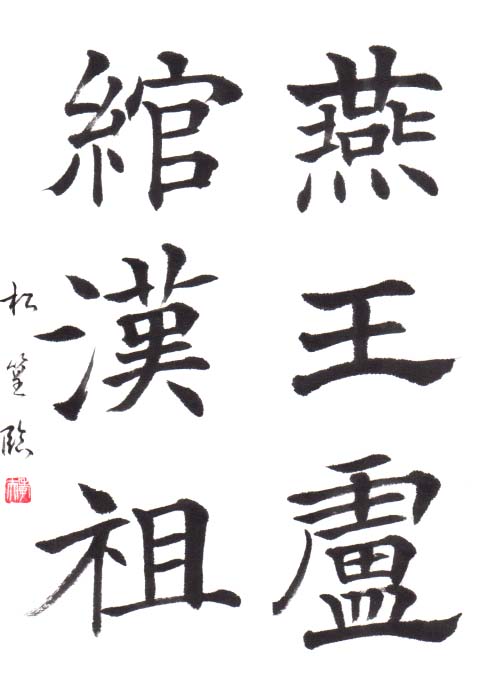 燕王盧
綰漢祖
松篁臨